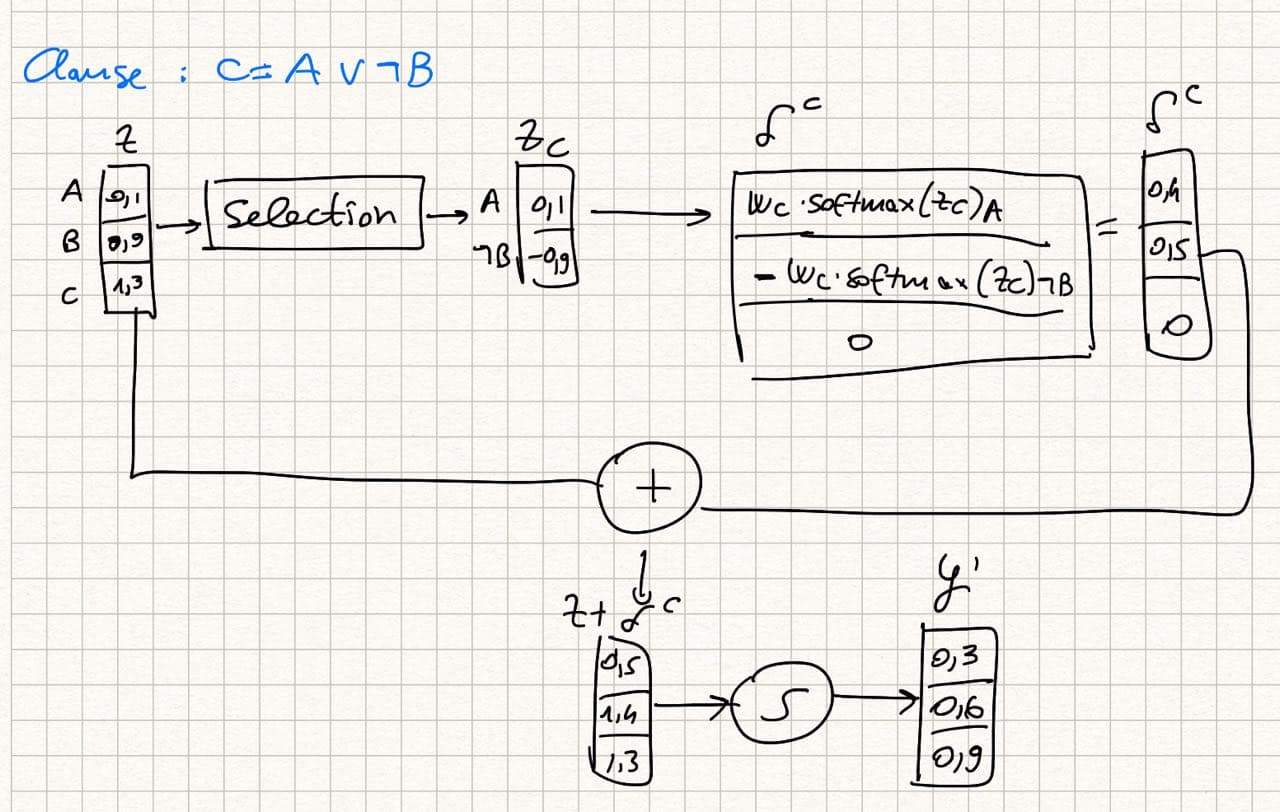 Clause : C= A ∨ ¬B
z
A 0,1
B 0,9
C 1,3
Selection
zc
A 0,1
¬B -0,9
δ^c
wc·softmax(zc)A
- wc·softmax(zc)¬B
0
=
δ^c
0,4
0,5
0
+
z+ δ^c
0,5
1,4
1,3
S
y'
0,3
0,6
0,9